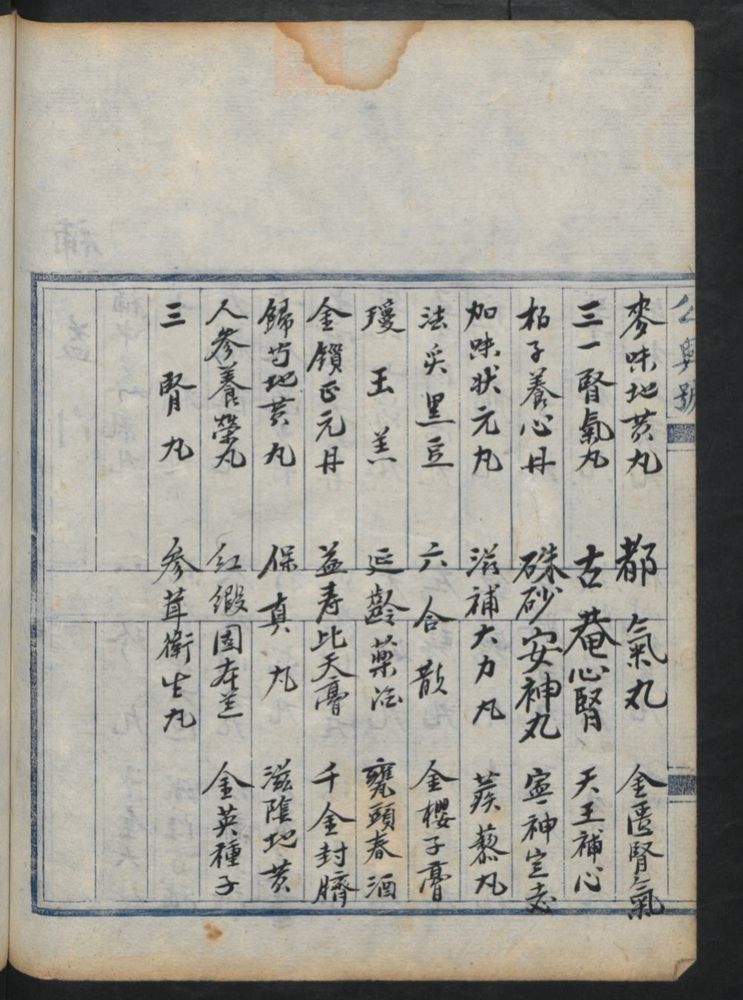 公興號
麥味地黄丸 都氣丸 金匱腎氣
三一腎氣丸 古菴心腎 天王補心
柏子養心丹 硃砂安神丸 寧神定志
加味状元丸 滋補大力丸 蒺藜丸
法炙黑豆 六合散 金櫻子膏
瓊玉羔 延齡藥酒 甕頭春酒
金鎖正元丹 益寿比天膏 千金封臍
歸芍地黄丸 保真丸 滋陰地黄
人參養榮丸 紅緞固本 金英種子
三腎丸 參茸衛生丸